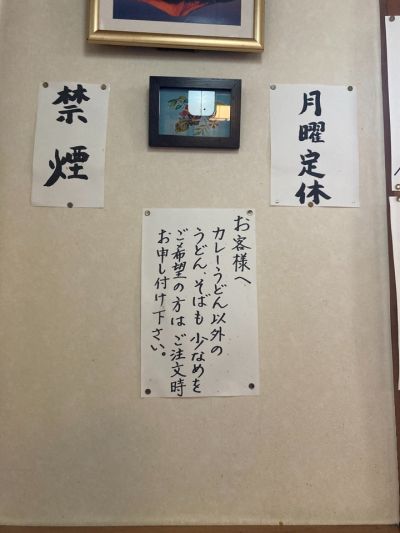 禁煙
月曜定休
お客様へ
カレーうどん以外の
うどん、そばも少なめを
ご希望の方はご注文時
お申し付け下さい。